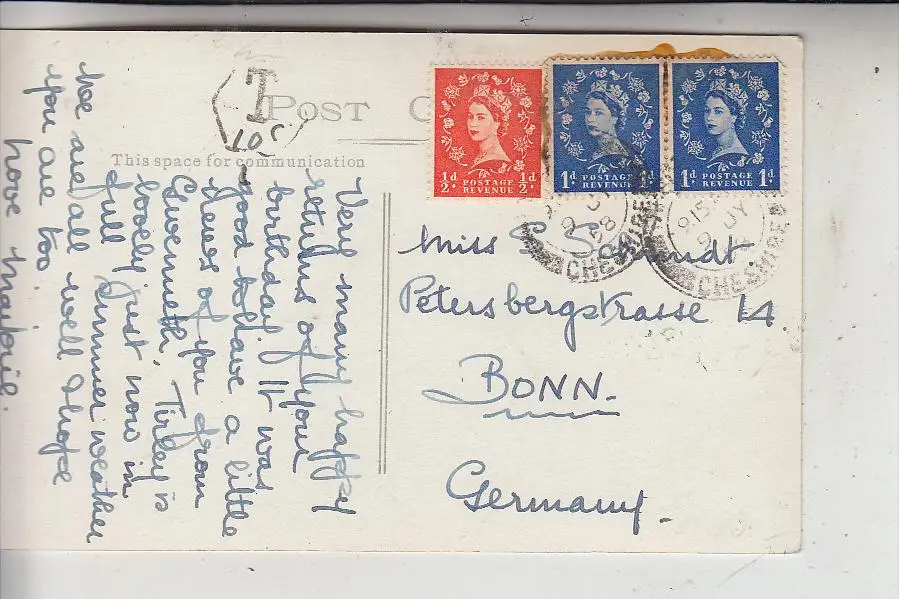 POST C
This space for communication
T
10C
Very many happy
returns of your
birthday. It was
good to have a little
news of you from
Gwenneth. Tirley is
lovely just now in
full summer weather
We are all well & hope
you are too.
Love Marjorie.
½d POSTAGE REVENUE ½d
1d POSTAGE REVENUE 1d
1d POSTAGE REVENUE 1d
9 JY 58
CHESHIRE
9 15
9 JY
CHESHIRE
Miss C Schmidt.
Petersbergstrasse 14
BONN.
Germany.